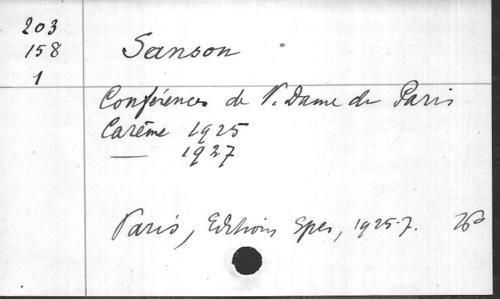 203
158
1
Sanson
Conférences de N. Dame de Paris
Carême 1925
— 1927
Paris, Editions Spes, 1925-7.